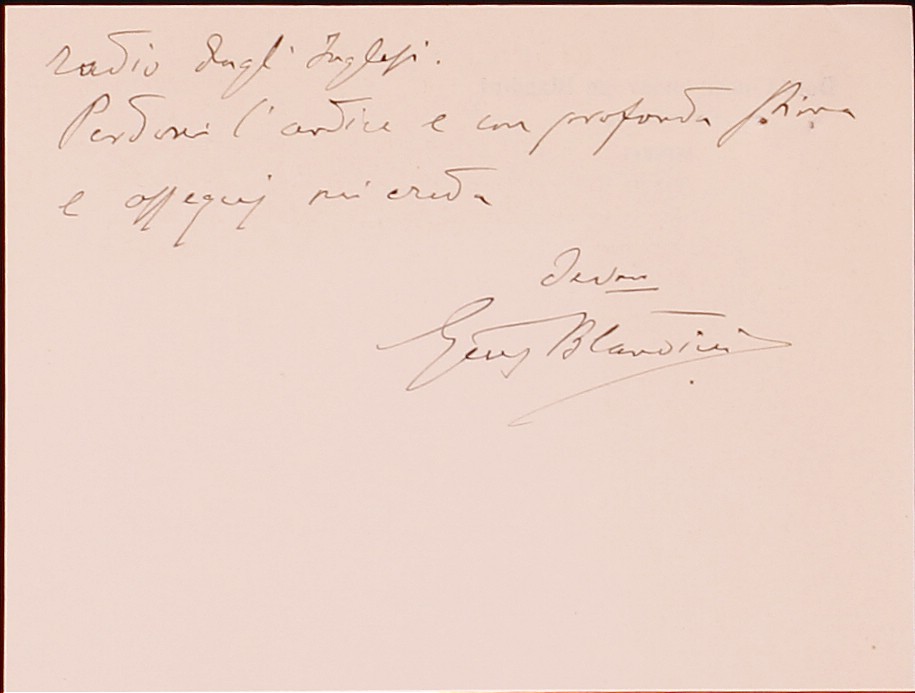 radio dagli Inglesi.
Perdoni l'ardire e con profonda stima
e ossequij mi creda
Devmo
Blandini